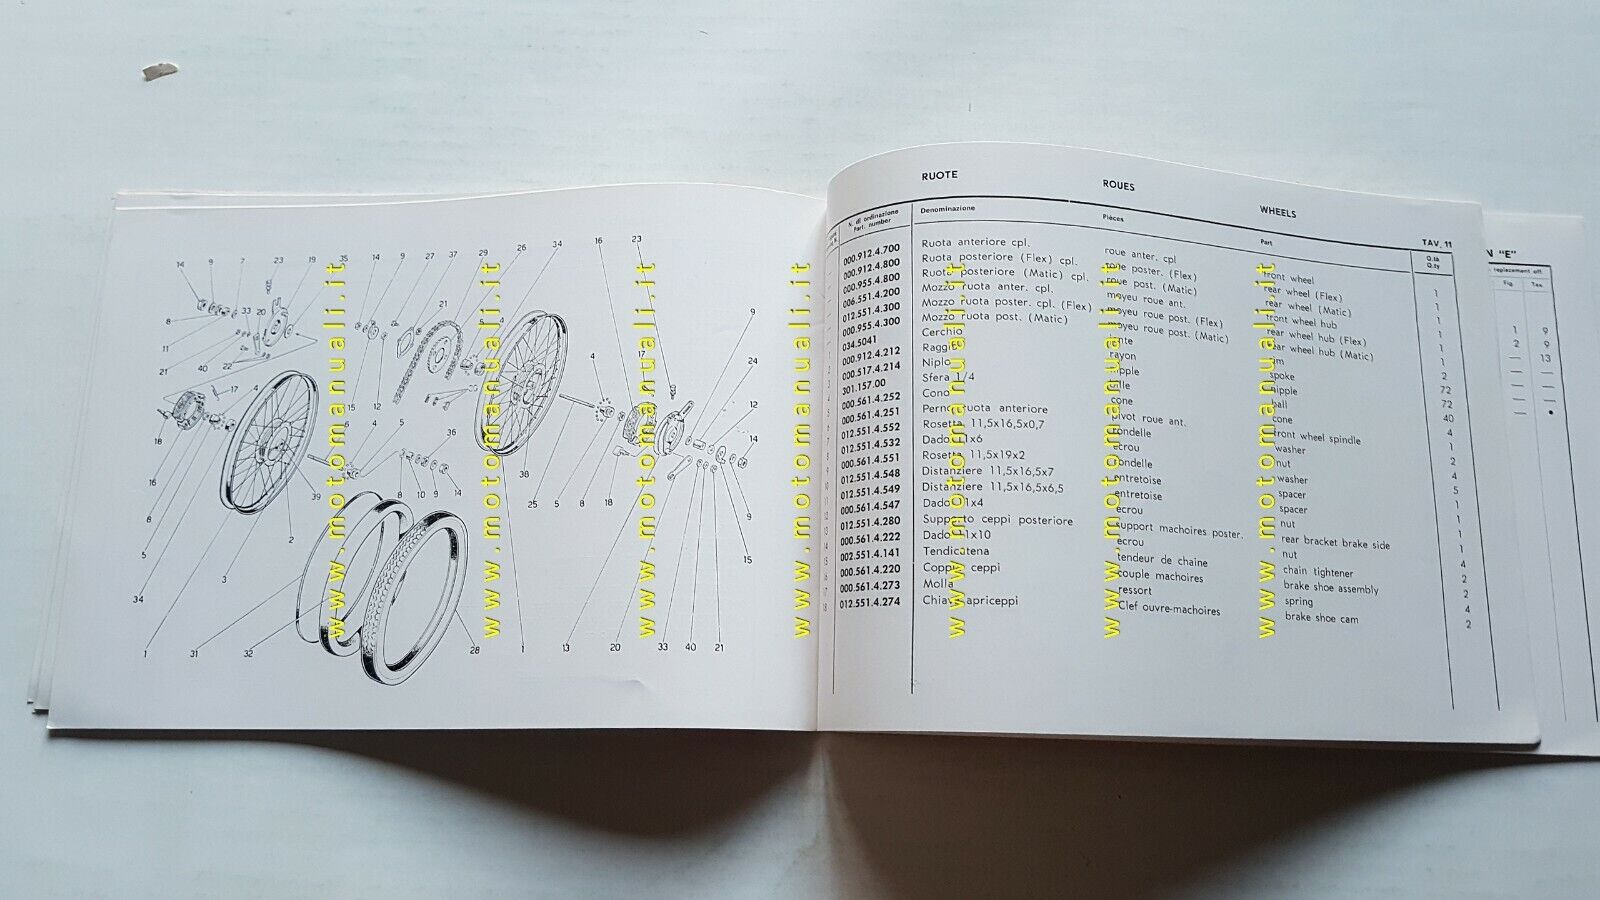 RUOTE ROUES WHEELS
TAV. 11
N. di ordinazione Part. number Denominazione Pièces Part Q.tà Q.ty
000.912.4.700 Ruota anteriore cpl. roue anter. cpl front wheel 1
000.912.4.800 Ruota posteriore (Flex) cpl. roue poster. (Flex) rear wheel (Flex) 1
000.955.4.800 Ruota posteriore (Matic) cpl. roue post. (Matic) rear wheel (Matic) 1
006.551.4.200 Mozzo ruota anter. cpl. moyeu roue ant. front wheel hub 1
012.551.4.300 Mozzo ruota poster. cpl. (Flex) moyeu roue post. (Flex) rear wheel hub (Flex) 1
000.955.4.300 Mozzo ruota post. (Matic) moyeu roue post. (Matic) rear wheel hub (Matic) 1
034.5041 Cerchio 2
000.912.4.212 Raggi rayon spoke 72
000.517.4.214 Niplo nipple nipple 72
301.157.00 Sfera 1/4 ball 40
000.561.4.252 Cono cone cone 4
000.561.4.251 Perno ruota anteriore pivot roue ant. front wheel spindle 1
012.551.4.552 Rosetta 11,5x16,5x0,7 rondelle washer 2
012.551.4.532 Dado 11x6 écrou nut 4
000.561.4.551 Rosetta 11,5x19x2 rondelle washer 5
012.551.4.548 Distanziere 11,5x16,5x7 entretoise spacer 1
012.551.4.549 Distanziere 11,5x16,5x6,5 entretoise spacer 1
000.561.4.547 Dado 11x4 écrou nut 1
012.551.4.280 Supporto ceppi posteriore support machoires poster. rear bracket brake side 1
000.561.4.222 Dado 11x10 écrou nut 4
002.551.4.141 Tendicatena tendeur de chaine chain tightener 2
000.561.4.220 Coppia ceppi couple machoires brake shoe assembly 2
000.561.4.273 Molla ressort spring 4
012.551.4.274 Chiave apriceppi Clef ouvre-machoires brake shoe cam 2
N "E"
replacement off.
Fig. Tav.
1 9
2 9
— 13
— —
— —
— —
— •
14 9 7 23 19 35 14 9 27 37 29 26 34 16 23
8 33 20 21 9
11 24
21 40 22 17 4 15 6 12 4 5 36 12
18 14
16 39 8 10 9 14 38 25 5 8 18 9
8 2 15
5 3
34
1 31 32 28 1 13 20 33 40 21
www.motomanuali.it
www.motomanuali.it
www.motomanuali.it
www.motomanuali.it
www.motomanuali.it
www.motomanuali.it
www.motomanuali.it